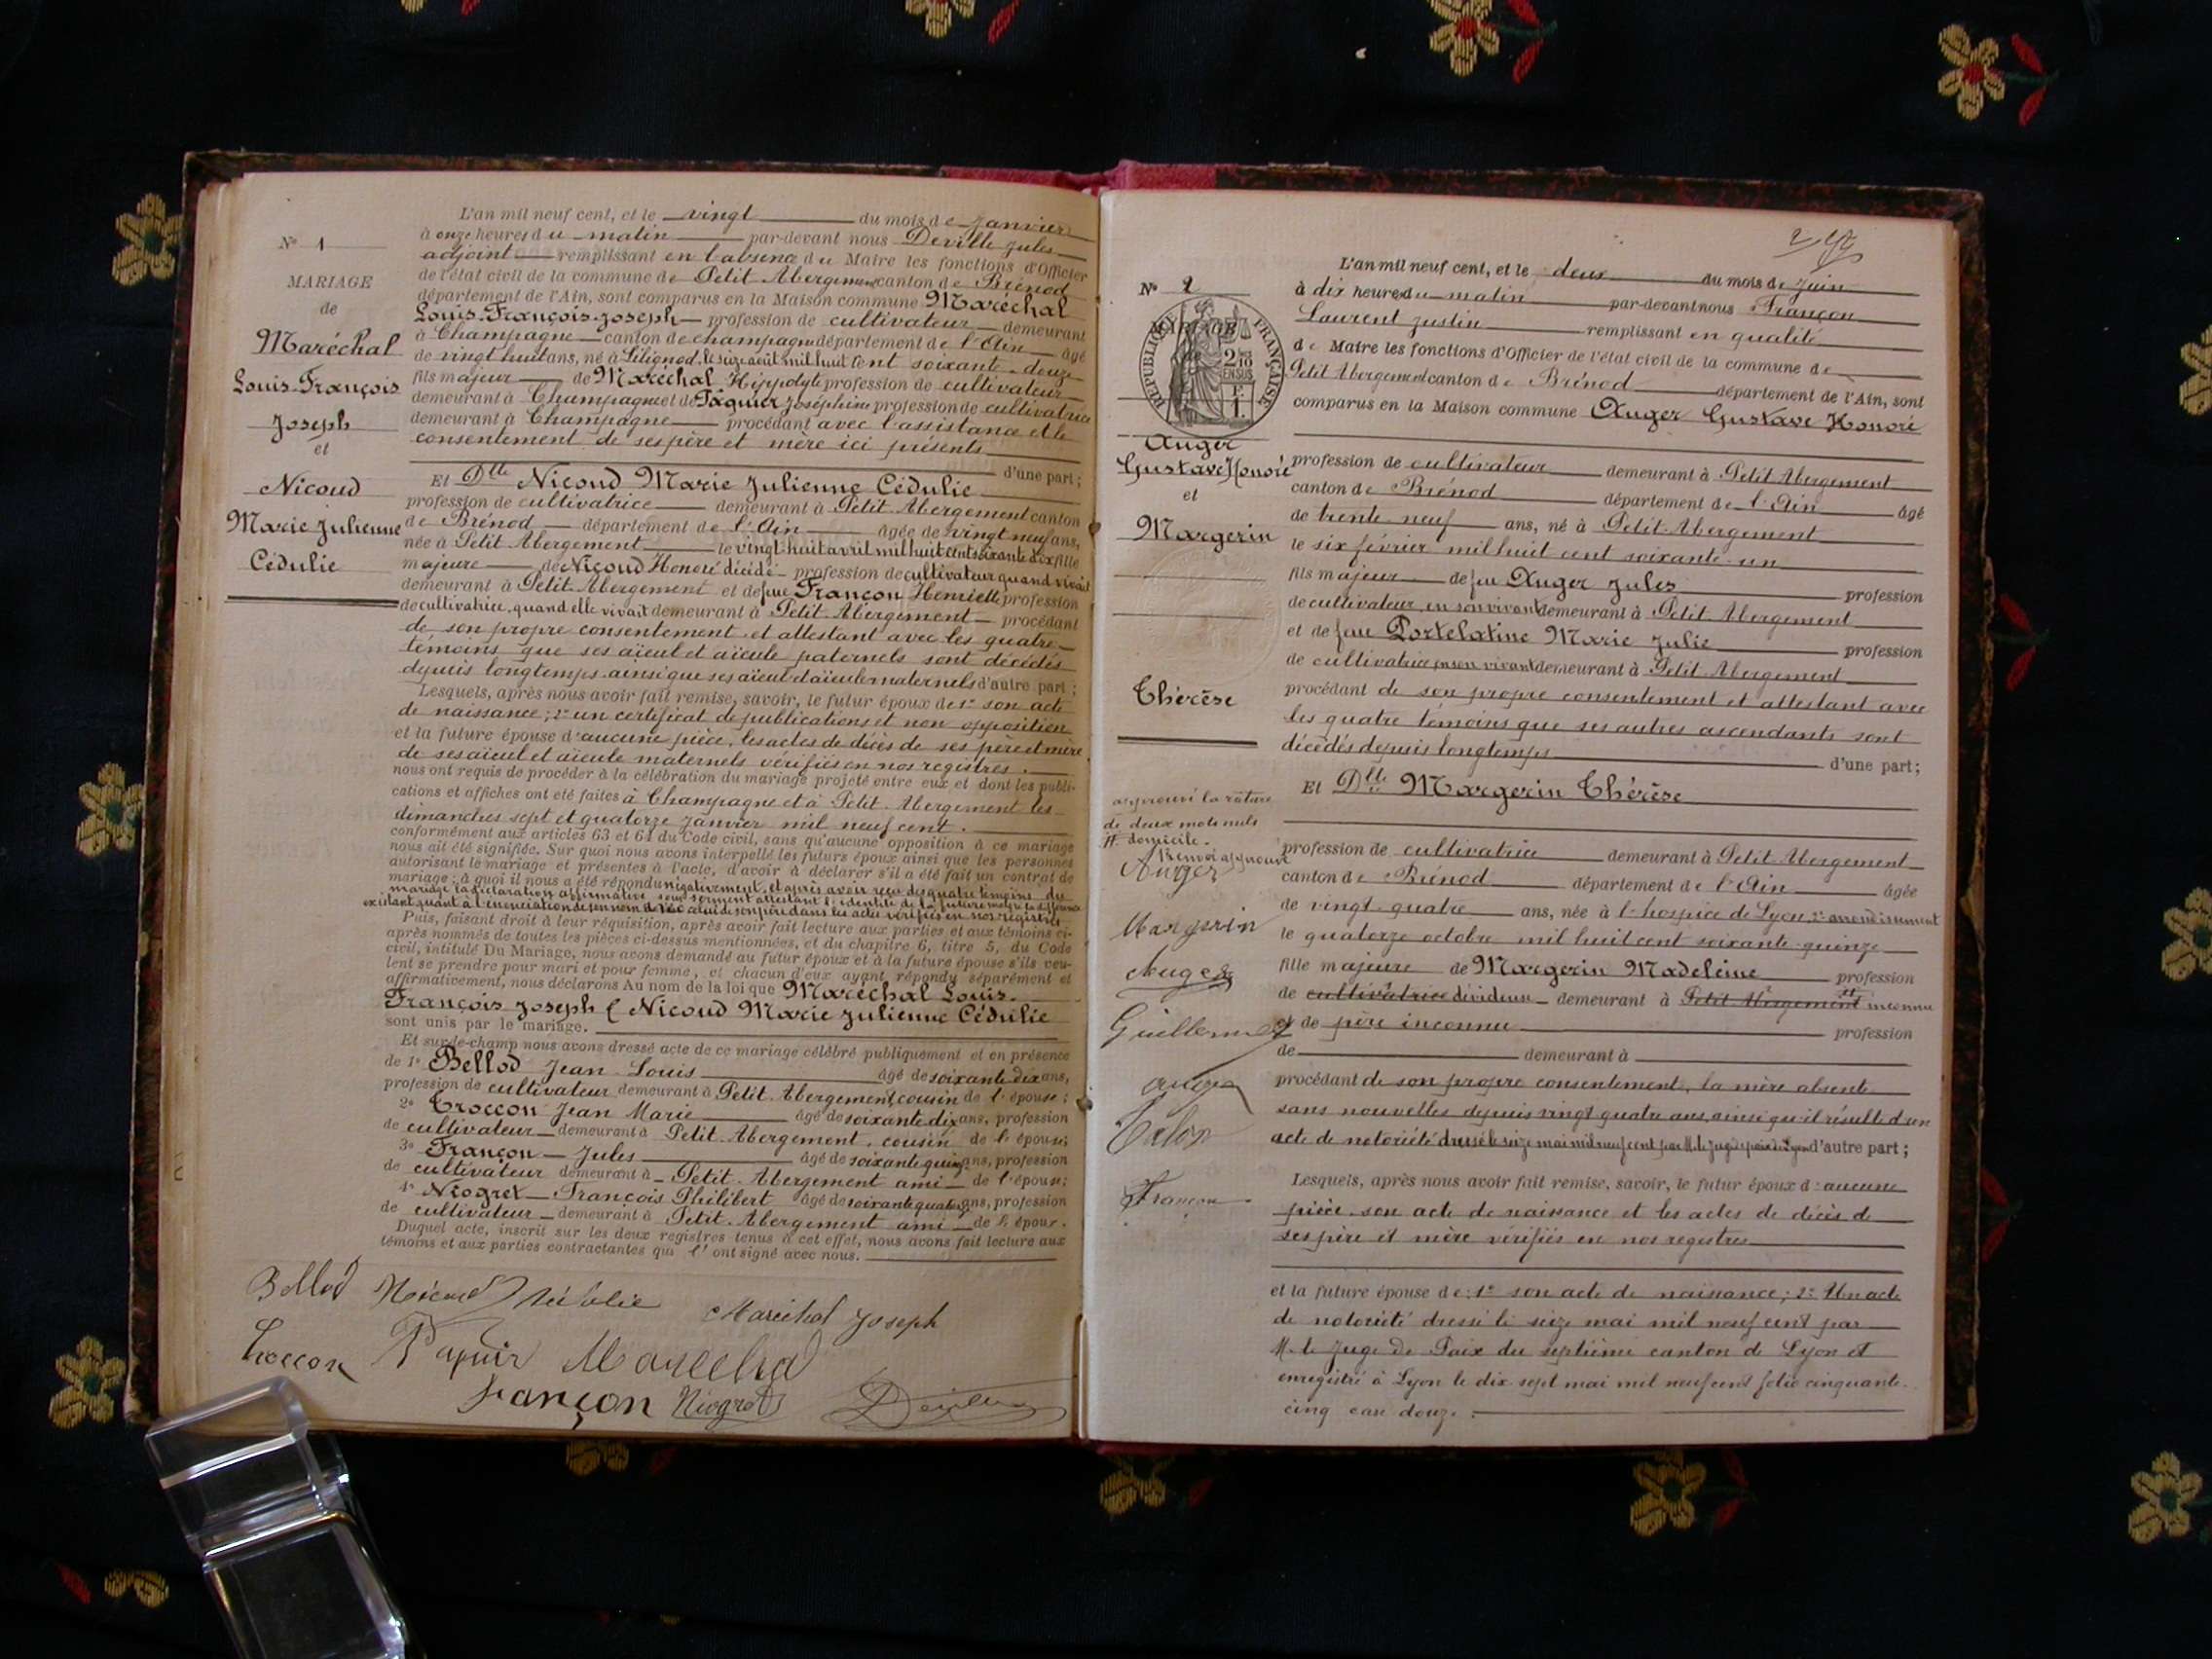 N° 1
MARIAGE
de
Maréchal
Louis-François
Joseph
et
Nicoud
Marie Julienne
Cédulie
L'an mil neuf cent, et le vingt du mois de Janvier
à onze heures du matin par-devant nous Deville Jules
adjoint remplissant en l'absence du Maire les fonctions d'Officier
de l'état civil de la commune de Petit Abergement canton de Brénod
département de l'Ain, sont comparus en la Maison commune Maréchal
Louis-François-Joseph profession de cultivateur demeurant
à Champagne canton de Champagne département de l'Ain âgé
de vingt huit ans, né à Lilignod, le seize août mil huit cent soixante-douze
fils majeur de Maréchal Hippolyte profession de cultivateur
demeurant à Champagne et de Paquier Joséphine profession de cultivatrice
demeurant à Champagne procédant avec l'assistance et le
consentement de ses père et mère ici présents
d'une part;
Et Dlle Nicoud Marie Julienne Cédulie
profession de cultivatrice demeurant à Petit Abergement canton
de Brénod département de l'Ain âgée de vingt neuf ans,
née à Petit Abergement le vingt huit avril mil huit cent soixante dix fille
majeure de Nicoud Honoré décédé profession de cultivateur quand vivait
demeurant à Petit Abergement et de feue Françon Henriette profession
de cultivatrice, quand elle vivait demeurant à Petit Abergement procédant
de son propre consentement et attestant avec les quatre
témoins que ses aïeul et aïeule paternels sont décédés
depuis longtemps ainsi que ses aïeul et aïeule maternels d'autre part;
Lesquels, après nous avoir fait remise, savoir, le futur époux de 1° son acte
de naissance; 2° un certificat de publications et non opposition
et la future épouse d'aucune pièce, les actes de décès de ses père et mère
de ses aïeul et aïeule maternels vérifiés en nos registres.
nous ont requis de procéder à la célébration du mariage projeté entre eux et dont les publi-
cations et affiches ont été faites à Champagne et à Petit Abergement les
dimanches sept et quatorze janvier mil neuf cent.
conformément aux articles 63 et 64 du Code civil, sans qu'aucune opposition à ce mariage
nous ait été signifiée. Sur quoi nous avons interpellé les futurs époux ainsi que les personnes
autorisant le mariage et présentes à l'acte, d'avoir à déclarer s'il a été fait un contrat de
mariage; à quoi il nous a été répondu négativement, et après avoir reçu des quatre témoins du
mariage la déclaration affirmative sous serment attestant l'identité de la future malgré la différence
existant quant à l'énonciation de son nom avec celui de son père dans les actes vérifiés en nos registres
Puis, faisant droit à leur réquisition, après avoir fait lecture aux parties et aux témoins ci-
après nommés de toutes les pièces ci-dessus mentionnées, et du chapitre 6, titre 5, du Code
civil, intitulé Du Mariage, nous avons demandé au futur époux et à la future épouse s'ils veu-
lent se prendre pour mari et pour femme, et chacun d'eux ayant répondu séparément et
affirmativement, nous déclarons Au nom de la loi que Maréchal Louis-
François Joseph & Nicoud Marie Julienne Cédulie
sont unis par le mariage.
Et sur-le-champ nous avons dressé acte de ce mariage célébré publiquement et en présence
de 1° Bellod Jean Louis âgé de soixante dix ans,
profession de cultivateur demeurant à Petit Abergement, cousin de l'épouse;
2° Troccon Jean Marie âgé de soixante dix ans, profession
de cultivateur demeurant à Petit Abergement, cousin de l'épouse;
3° Françon Jules âgé de soixante quinze ans, profession
de cultivateur demeurant à Petit Abergement ami de l'épouse;
4° Niogret François Philibert âgé de soixante quatorze ans, profession
de cultivateur demeurant à Petit Abergement ami de l'époux.
Duquel acte, inscrit sur les deux registres tenus à cet effet, nous avons fait lecture aux
témoins et aux parties contractantes qui l'ont signé avec nous.
Bellod Nicoud Cédulie Maréchal Joseph
Troccon Paquir Marechal
Françon Niogret Deville
N° 2
MARIAGE
RÉPUBLIQUE FRANÇAISE
2/10 EN SUS
F. 1.
Auger
Gustave Honoré
et
Margerin
Thérèse
approuvé la rature
de deux mots nuls
# domicile.
Renvoi approuvé
Auger
Margerin
Auger
Guillermet
Auger
Talon
Françon
2
L'an mil neuf cent, et le deux du mois de Juin
à dix heures du matin par-devant nous Françon
Laurent Justin remplissant en qualité
de Maire les fonctions d'Officier de l'état civil de la commune de
Petit Abergement canton de Brénod département de l'Ain, sont
comparus en la Maison commune Auger Gustave Honoré
profession de cultivateur demeurant à Petit Abergement
canton de Brénod département de l'Ain âgé
de trente neuf ans, né à Petit-Abergement
le six février mil huit cent soixante-un
fils majeur de feu Auger Jules profession
de cultivateur, en son vivant demeurant à Petit Abergement
et de feue Portelatine Marie Julie profession
de cultivatrice en son vivant demeurant à Petit Abergement
procédant de son propre consentement et attestant avec
les quatre témoins que ses autres ascendants sont
décédés depuis longtemps d'une part;
Et Dlle Margerin Thérèse
profession de cultivatrice demeurant à Petit Abergement
canton de Brénod département de l'Ain âgée
de vingt-quatre ans, née à l'hospice de Lyon, 2e arrondissement
le quatorze octobre mil huit cent soixante-quinze
fille majeure de Margerin Madeleine profession
de cultivatrice dévideuse demeurant à Petit Abergement # inconnu
et de père inconnu profession
de demeurant à
procédant de son propre consentement, la mère absente
sans nouvelles depuis vingt quatre ans, ainsi qu'il résulte d'un
acte de notoriété dressé le seize mai mil neuf cent par M. le Juge de paix de Lyon d'autre part;
Lesquels, après nous avoir fait remise, savoir, le futur époux d'aucune
pièce son acte de naissance et les actes de décès de
ses père et mère vérifiés en nos registres
et la future épouse de: 1° son acte de naissance; 2° Un acte
de notoriété dressé le seize mai mil neuf cent par
M. le Juge de Paix du septième canton de Lyon et
enregistré à Lyon le dix sept mai mil neuf cent folio cinquante-
cinq case douze.